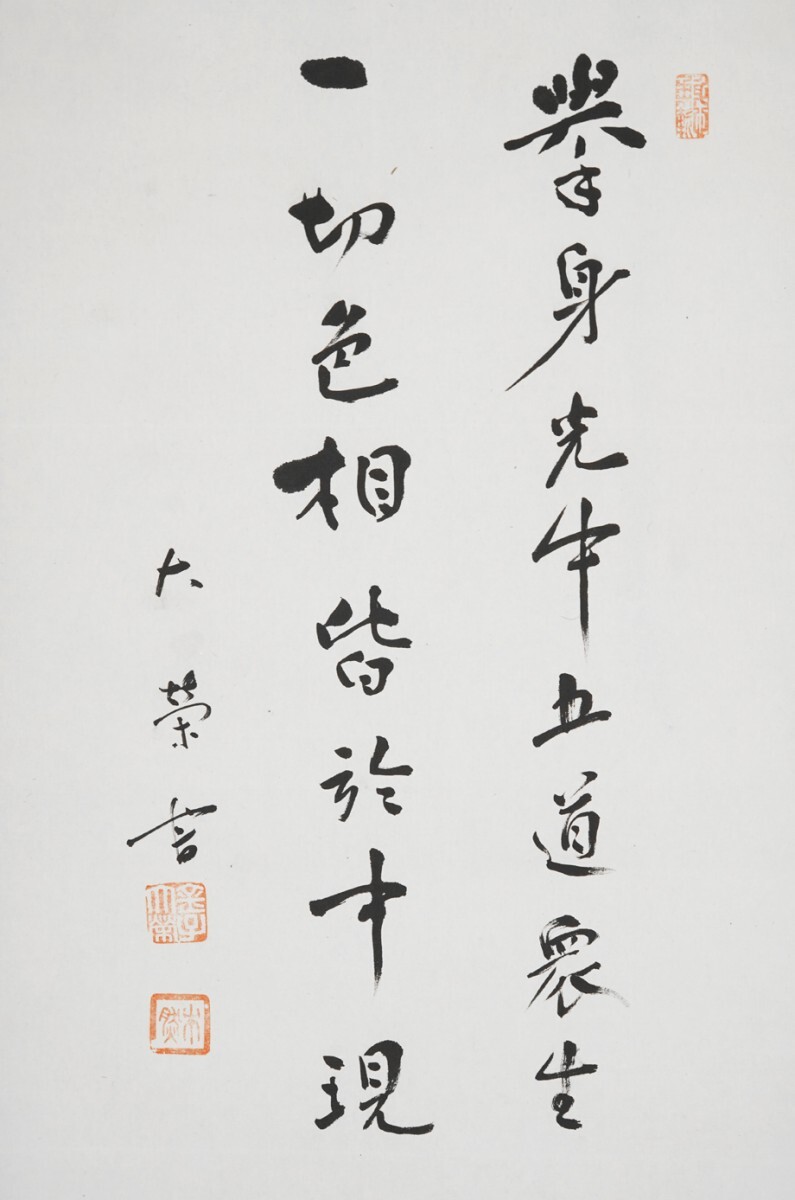 舉身光中五道眾生
一切色相皆於中現
大榮書